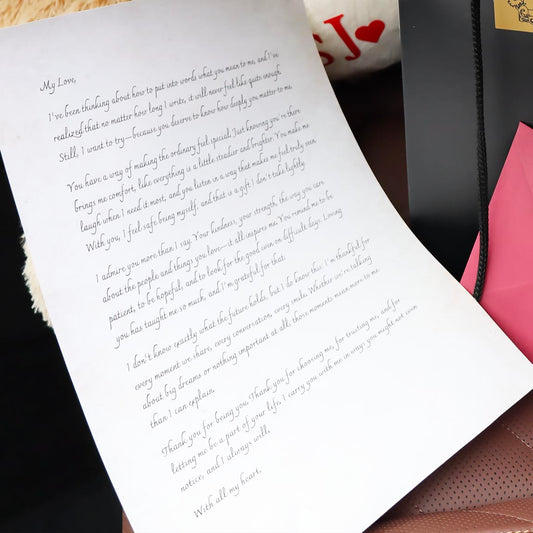 My Love,
I've been thinking about how to put into words what you mean to me, and I've
realized that no matter how long I write, it will never feel like quite enough.
Still, I want to try—because you deserve to know how deeply you matter to me.
You have a way of making the ordinary feel special. Just knowing you're there
brings me comfort, like everything is a little steadier and brighter. You make me
laugh when I need it most, and you listen in a way that makes me feel truly seen.
With you, I feel safe being myself, and that is a gift I don't take lightly.
I admire you more than I say. Your kindness, your strength, the way you care
about the people and things you love—it all inspires me. You remind me to be
patient, to be hopeful, and to look for the good even on difficult days. Loving
you has taught me so much, and I'm grateful for that.
I don't know exactly what the future holds, but I do know this: I'm thankful for
every moment we share, every conversation, every smile. Whether we're talking
about big dreams or nothing important at all, those moments mean more to me
than I can explain.
Thank you for being you. Thank you for choosing me, for trusting me, and for
letting me be a part of your life. I carry you with me in ways you might not even
notice, and I always will.
With all my heart,
SJ